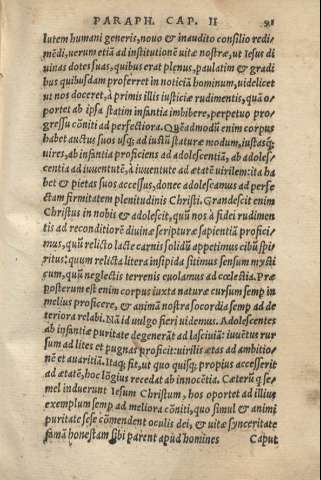 PARAPH. CAP. II 91
lutem humani generis, nouo & inaudito consilio redi
mēdi, uerum etiā ad institutionē uitæ nostræ, ut Iesus di
uinas dotes suas, quibus erat plenus, paulatim & gradi
bus quibusdam proferret in noticiā hominum, uidelicet
ut nos doceret, à primis illis iusticiæ rudimentis, quā o
portet ab ipsa statim infantia imbibere, perpetuo pro
gressu cōniti ad perfectiora. Quēadmodū enim corpus
habet auctus suos usq; ad iustū staturæ modum, iustasq;
uires, ab infantia proficiens ad adolescentiā, ab adoles/
centia ad iuuentutē, à iuuentute ad ætatē uirilem: ita ha
bet & pietas suos accessus, donec adolescamus ad perfe
ctam firmitatem plenitudinis Christi. Grandescit enim
Christus in nobis & adolescit, quū nos à fidei rudimen
tis ad reconditiorē diuinæ scripturæ sapientiā profici/
mus, quū relicto lacte carnis solidū appetimus cibū spi
ritus: quum relicta litera insipida sitimus sensum mysti
cum, quū neglectis terrenis euolamus ad cœlestia. Præ
posterum est enim corpus iuxta naturæ cursum semp in
melius proficere, & animā nostra socordia semp ad de
teriora relabi. Nā id uulgo fieri uidemus. Adolescentes
ab infantiæ puritate degenerāt ad lasciuiā: iuuētus rur
sum ad lites et pugnas proficit: uirilis ætas ad ambitio/
nē et auaritiā. Itaq; fit, ut quo quisq; propius accesserit
ad ætatē, hoc lōgius recedat ab innocētia. Cæterū q se/
mel induerunt Iesum Christum, hos oportet ad illius
exemplum semp ad meliora cōniti, quo simul & animi
puritate sese cōmendent oculis dei, & uitæ synceritate
famā honestam sibi parent apud homines Caput